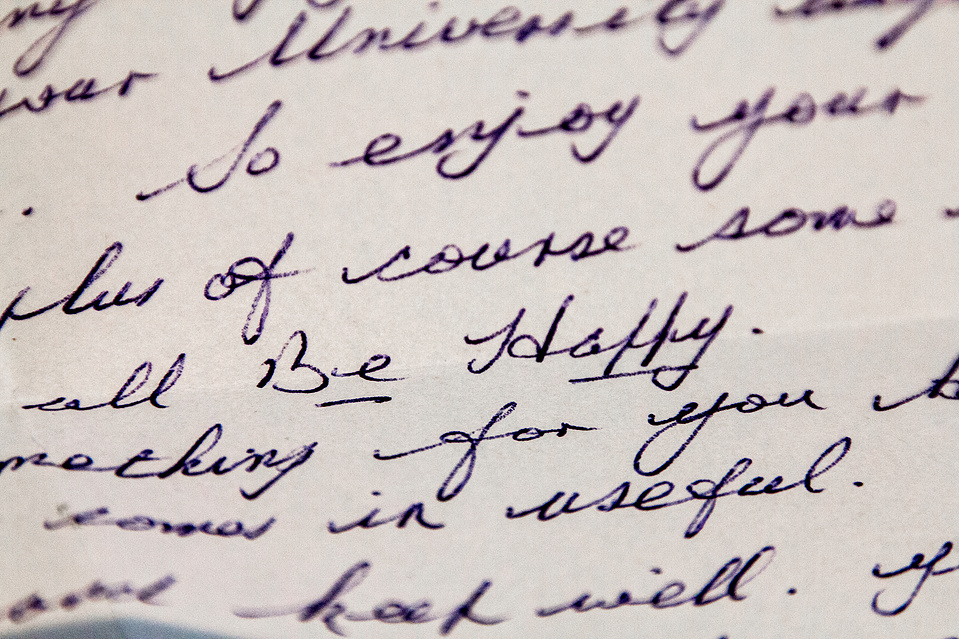 your University
. So enjoy your
plus of course some
all Be Happy.
for you
comes in useful.
keep well.